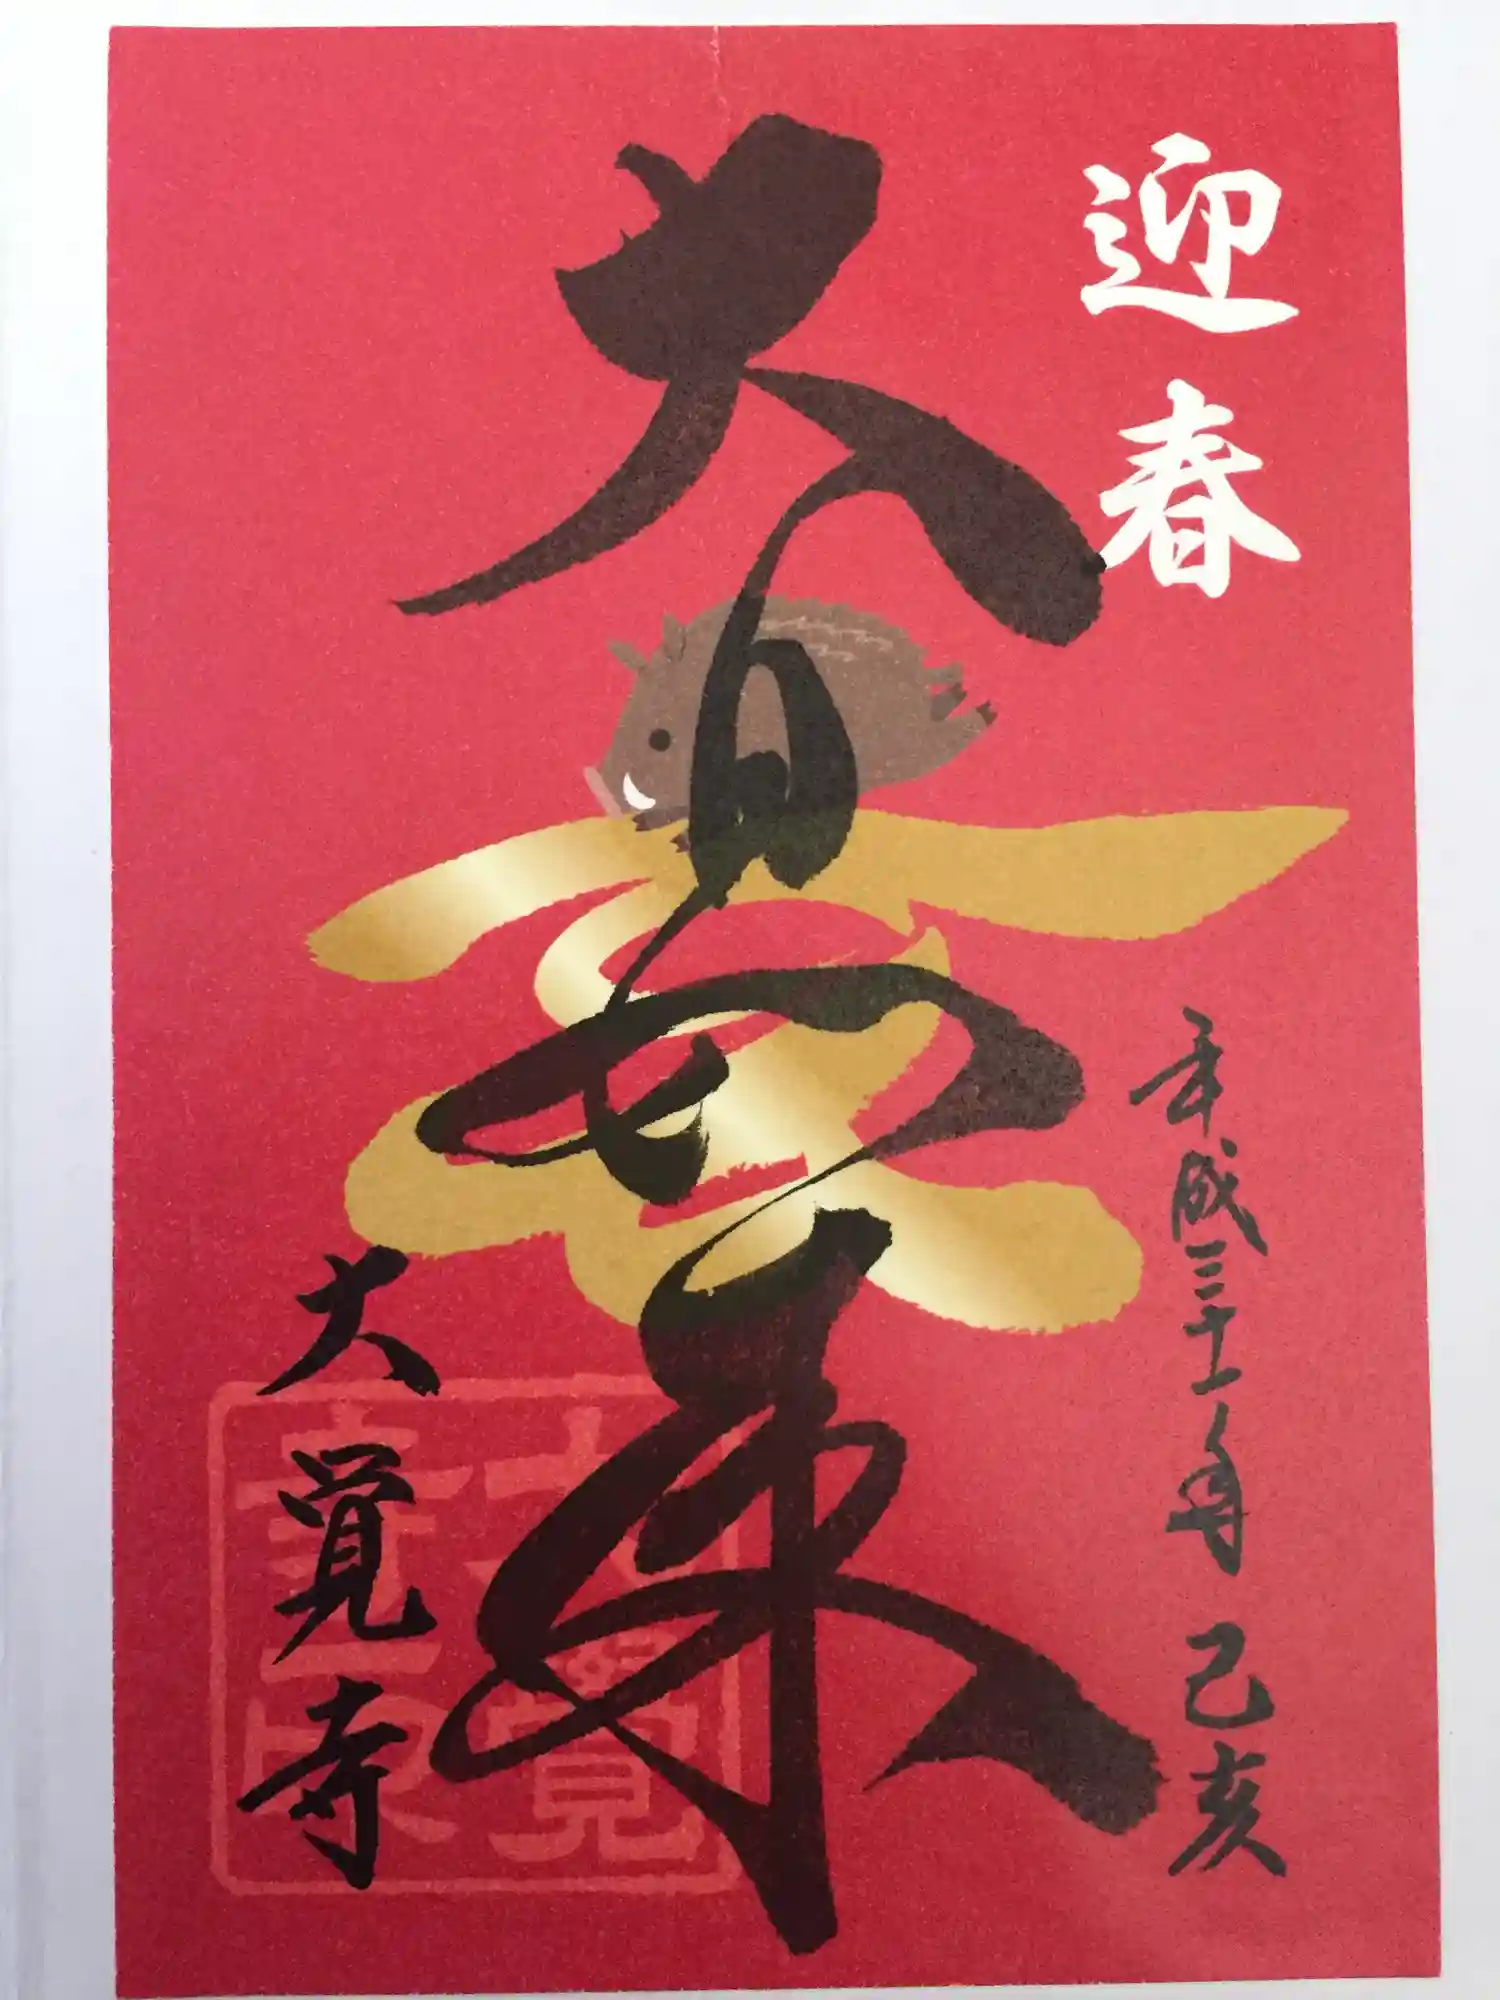 迎春
平成三十一年 己亥
大日如来
亥
大覚寺
大覚
寺印